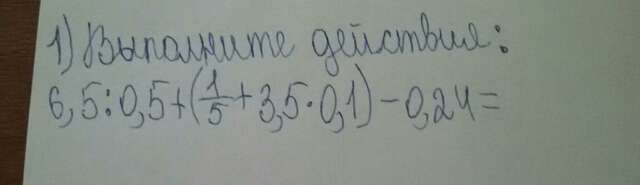 1) Выполните действия:
6,5:0,5+(1/5+3,5·0,1)-0,24=